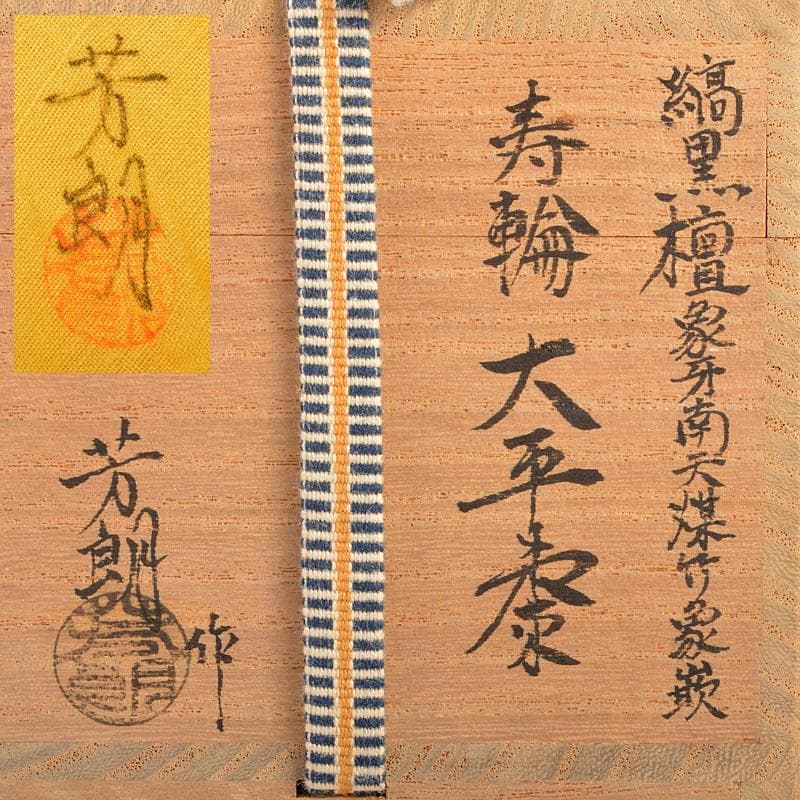 縞黒檀象牙南天煤竹象嵌
寿輪 大平棗
芳朗作
芳朗